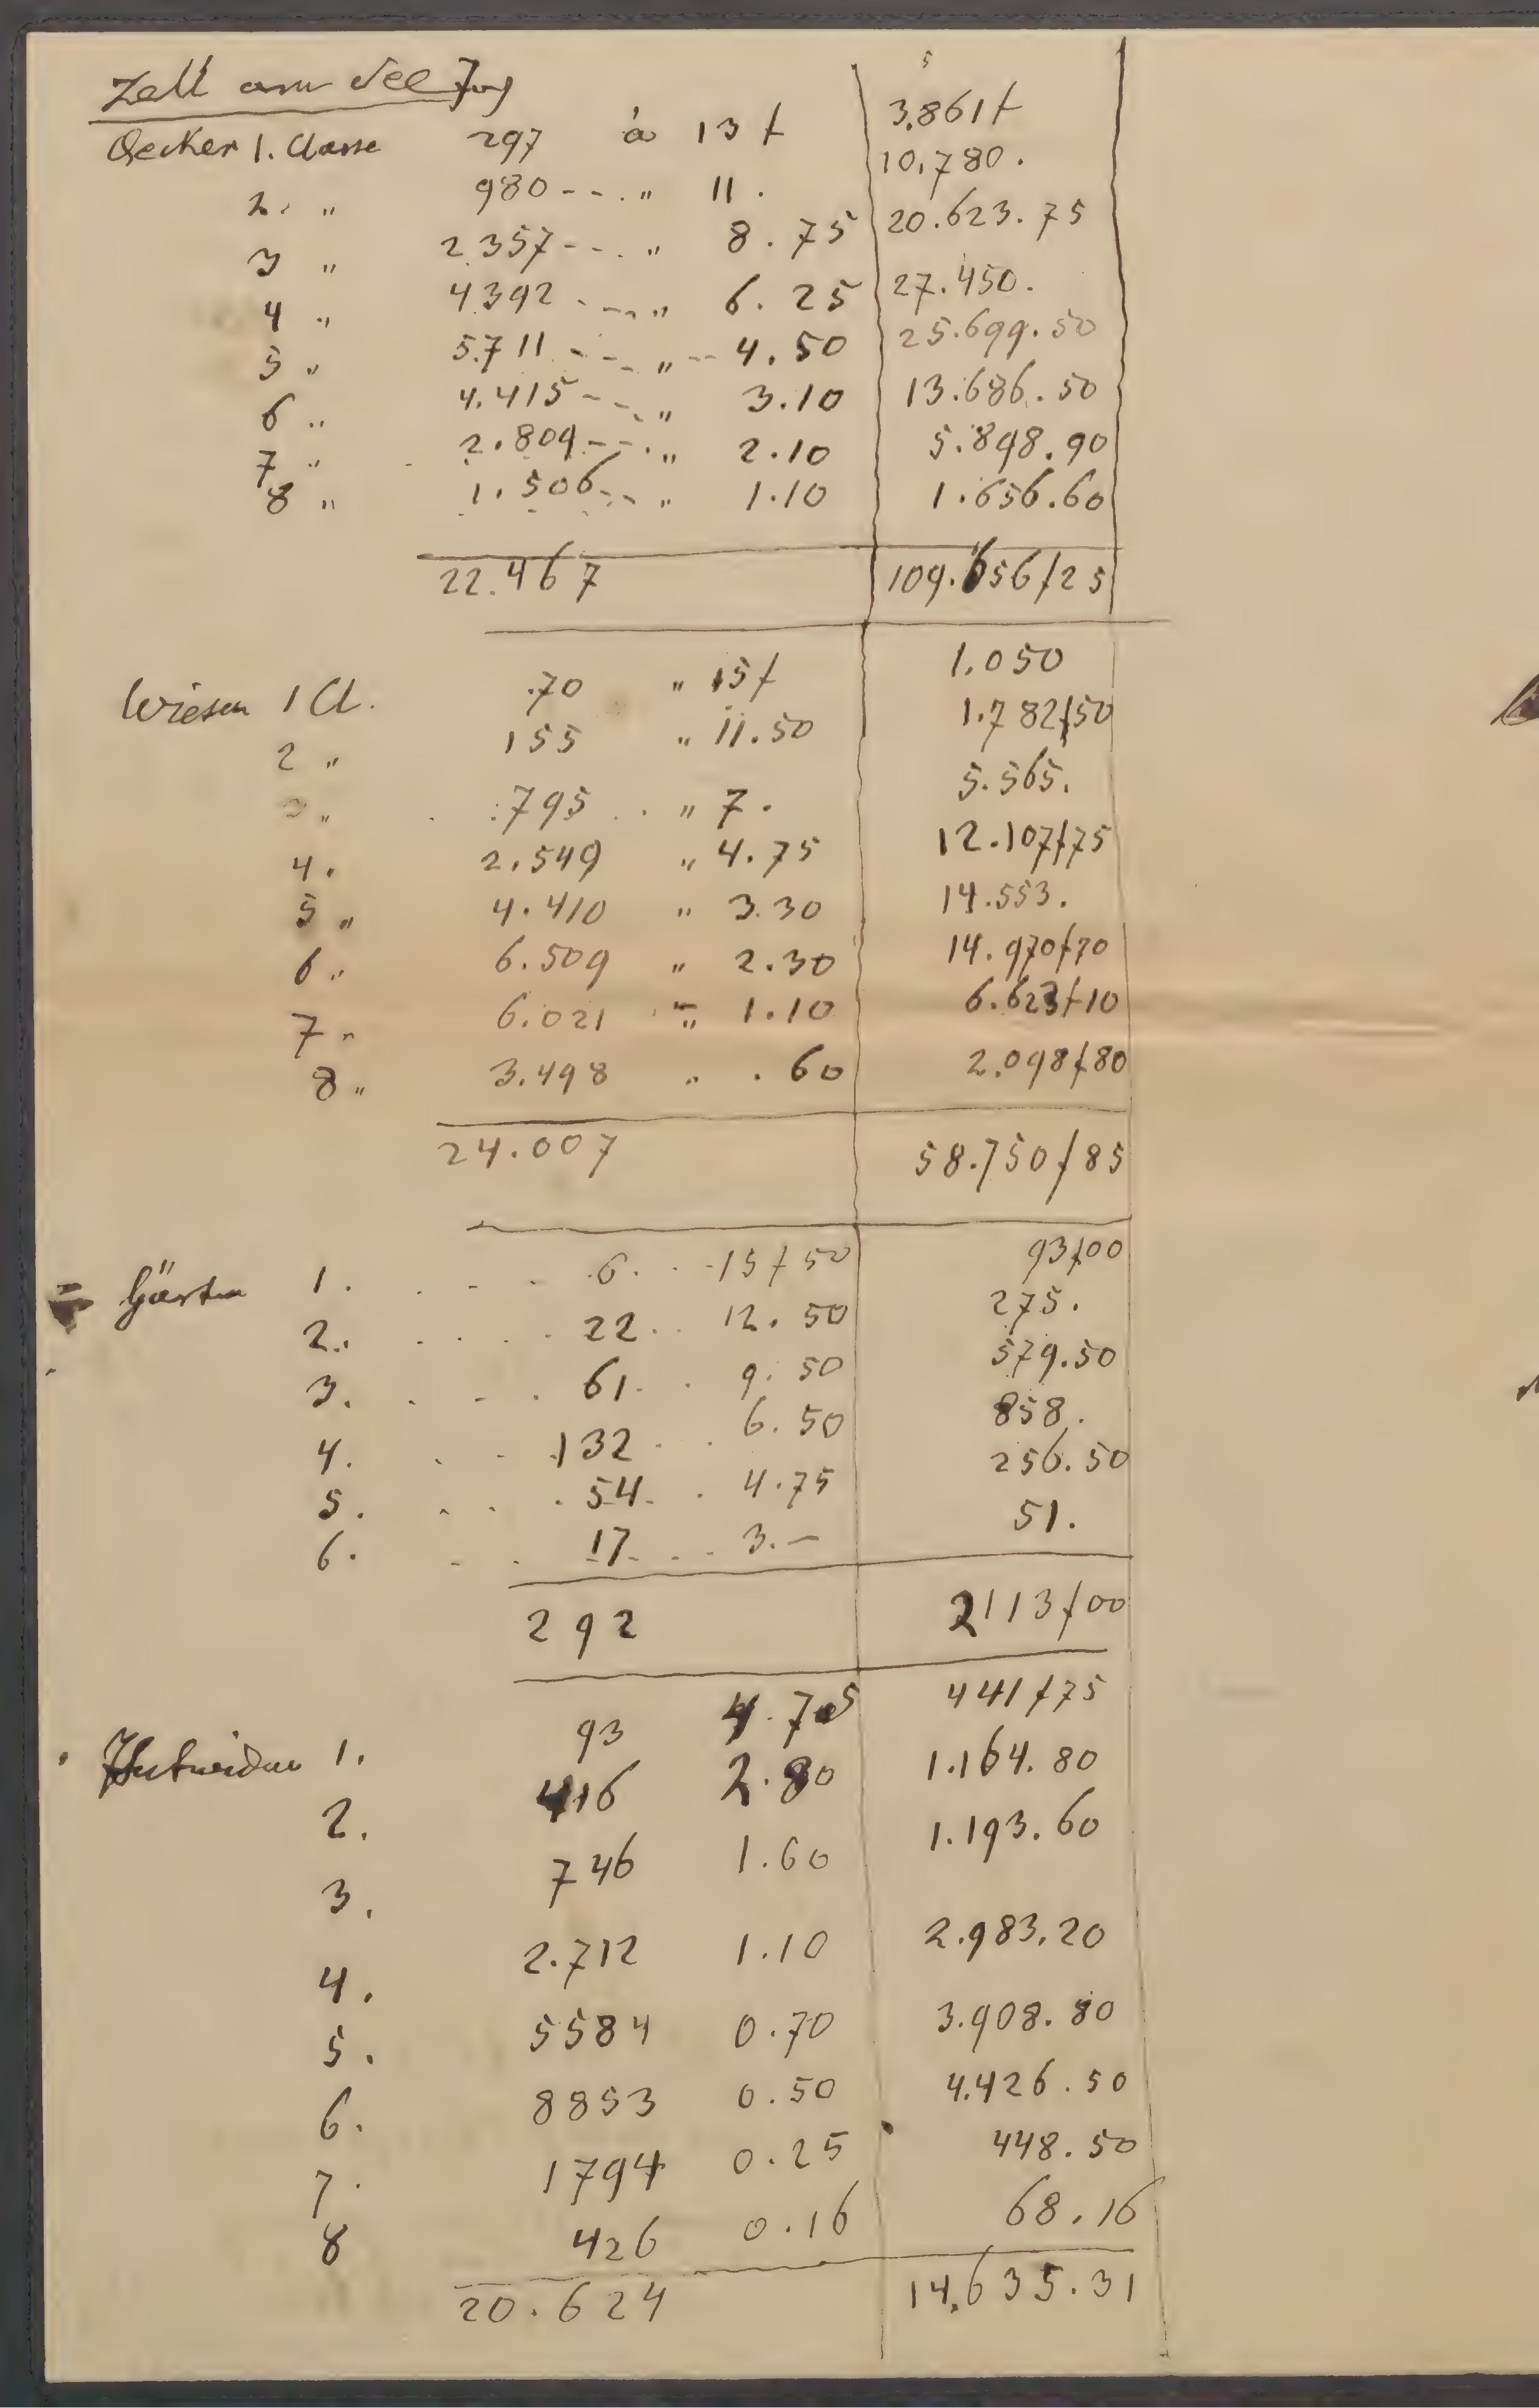 Zell am See
Aecker 1. Classe 297 à 13 f 3.861 f
2. " 980 --. " 11. 10.780.
3 " 2357 --. " 8.75 20.623.75
4 " 4392 ---. " 6.25 27.450.
5 " 5.711 --- " -- 4.50 25.699.50
6 " 4.415 --. " 3.10 13.686.50
7 " 2.809 --. " 2.10 5.898.90
8 " 1.506 --- " 1.10 1.656.60
22.467 109.656 f 25
Wiesen 1 Cl. 70 " 15 f 1.050
2 " 155 " 11.50 1.782 f 50
3 " 795 " 7. 5.565.
4. 2.549 " 4.75 12.107 f 75
5 " 4.410 " 3.30 14.553.
6 " 6.509 " 2.30 14.970 f 70
7 " 6.021 " 1.10 6.623 f 10
8 " 3.498 " .60 2.098 f 80
24.007 58.750 f 85
Gärten 1. 6. 15 f 50 93 f 00
2. 22 12.50 275.
3. 61 9.50 579.50
4. 132 6.50 858.
5. 54 4.75 256.50
6. 17 3.- 51.
292 2113 f 00
Hutweiden 1. 93 4.75 441 f 75
2. 416 2.80 1.164.80
3. 746 1.60 1.193.60
4. 2.712 1.10 2.983.20
5. 5584 0.70 3.908.80
6. 8853 0.50 4.426.50
7. 1794 0.25 448.50
8 426 0.16 68.16
20.624 14.635.31